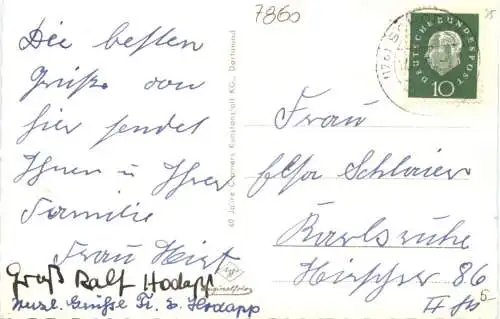 7860
Die besten
Grüße von
hier sendet
Ihnen u Ihrer
Familie
Frau Hirt
Gruß Ralf Hodapp
herzl. Grüsse Fr. E. Hodapp
60 Jahre Cramers Kunstanstalt KG., Dortmund
DEUTSCHE BUNDESPOST
10
Frau
Elsa Schlaier
Karlsruhe
Hirschstr 86